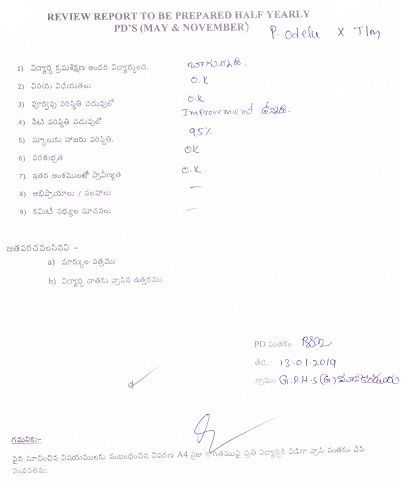 REVIEW REPORT TO BE PREPARED HALF YEARLY
PD'S (MAY & NOVEMBER)
P. odelu X T/m
1) విద్యార్థి క్రమశిక్షణ అందరి విద్యార్థులది. బాగున్నది.
2) వినయ విధేయతలు O.K
3) పూర్వపు పరిస్థితి చదువులో O.K
4) నేటి పరిస్థితి చదువులో Improvement ఉన్నది.
5) స్కూలుకు హాజరు పరిస్థితి. 95%
6) పరిశుభ్రత OK
7) ఇతర అంశములలో ప్రావీణ్యత O.K
8) అభిప్రాయాలు / సలహాలు —
9) కమిటీ సభ్యుల సూచనలు —
జతపరచవలసినవి –
a) మార్కుల పత్రము
b) విద్యార్థి దాతకు వ్రాసిన ఉత్తరము
PD సంతకం
తేది. 13-01-2019
గ్రామం G.P.H.S (G)
గమనిక:-
పైన సూచించిన విషయములకు సంబంధించిన వివరణ A4 సైజు కాగితముపై ప్రతి విద్యార్థికి విడిగా వ్రాసి సంతకం చేసి
పంపవలెను.